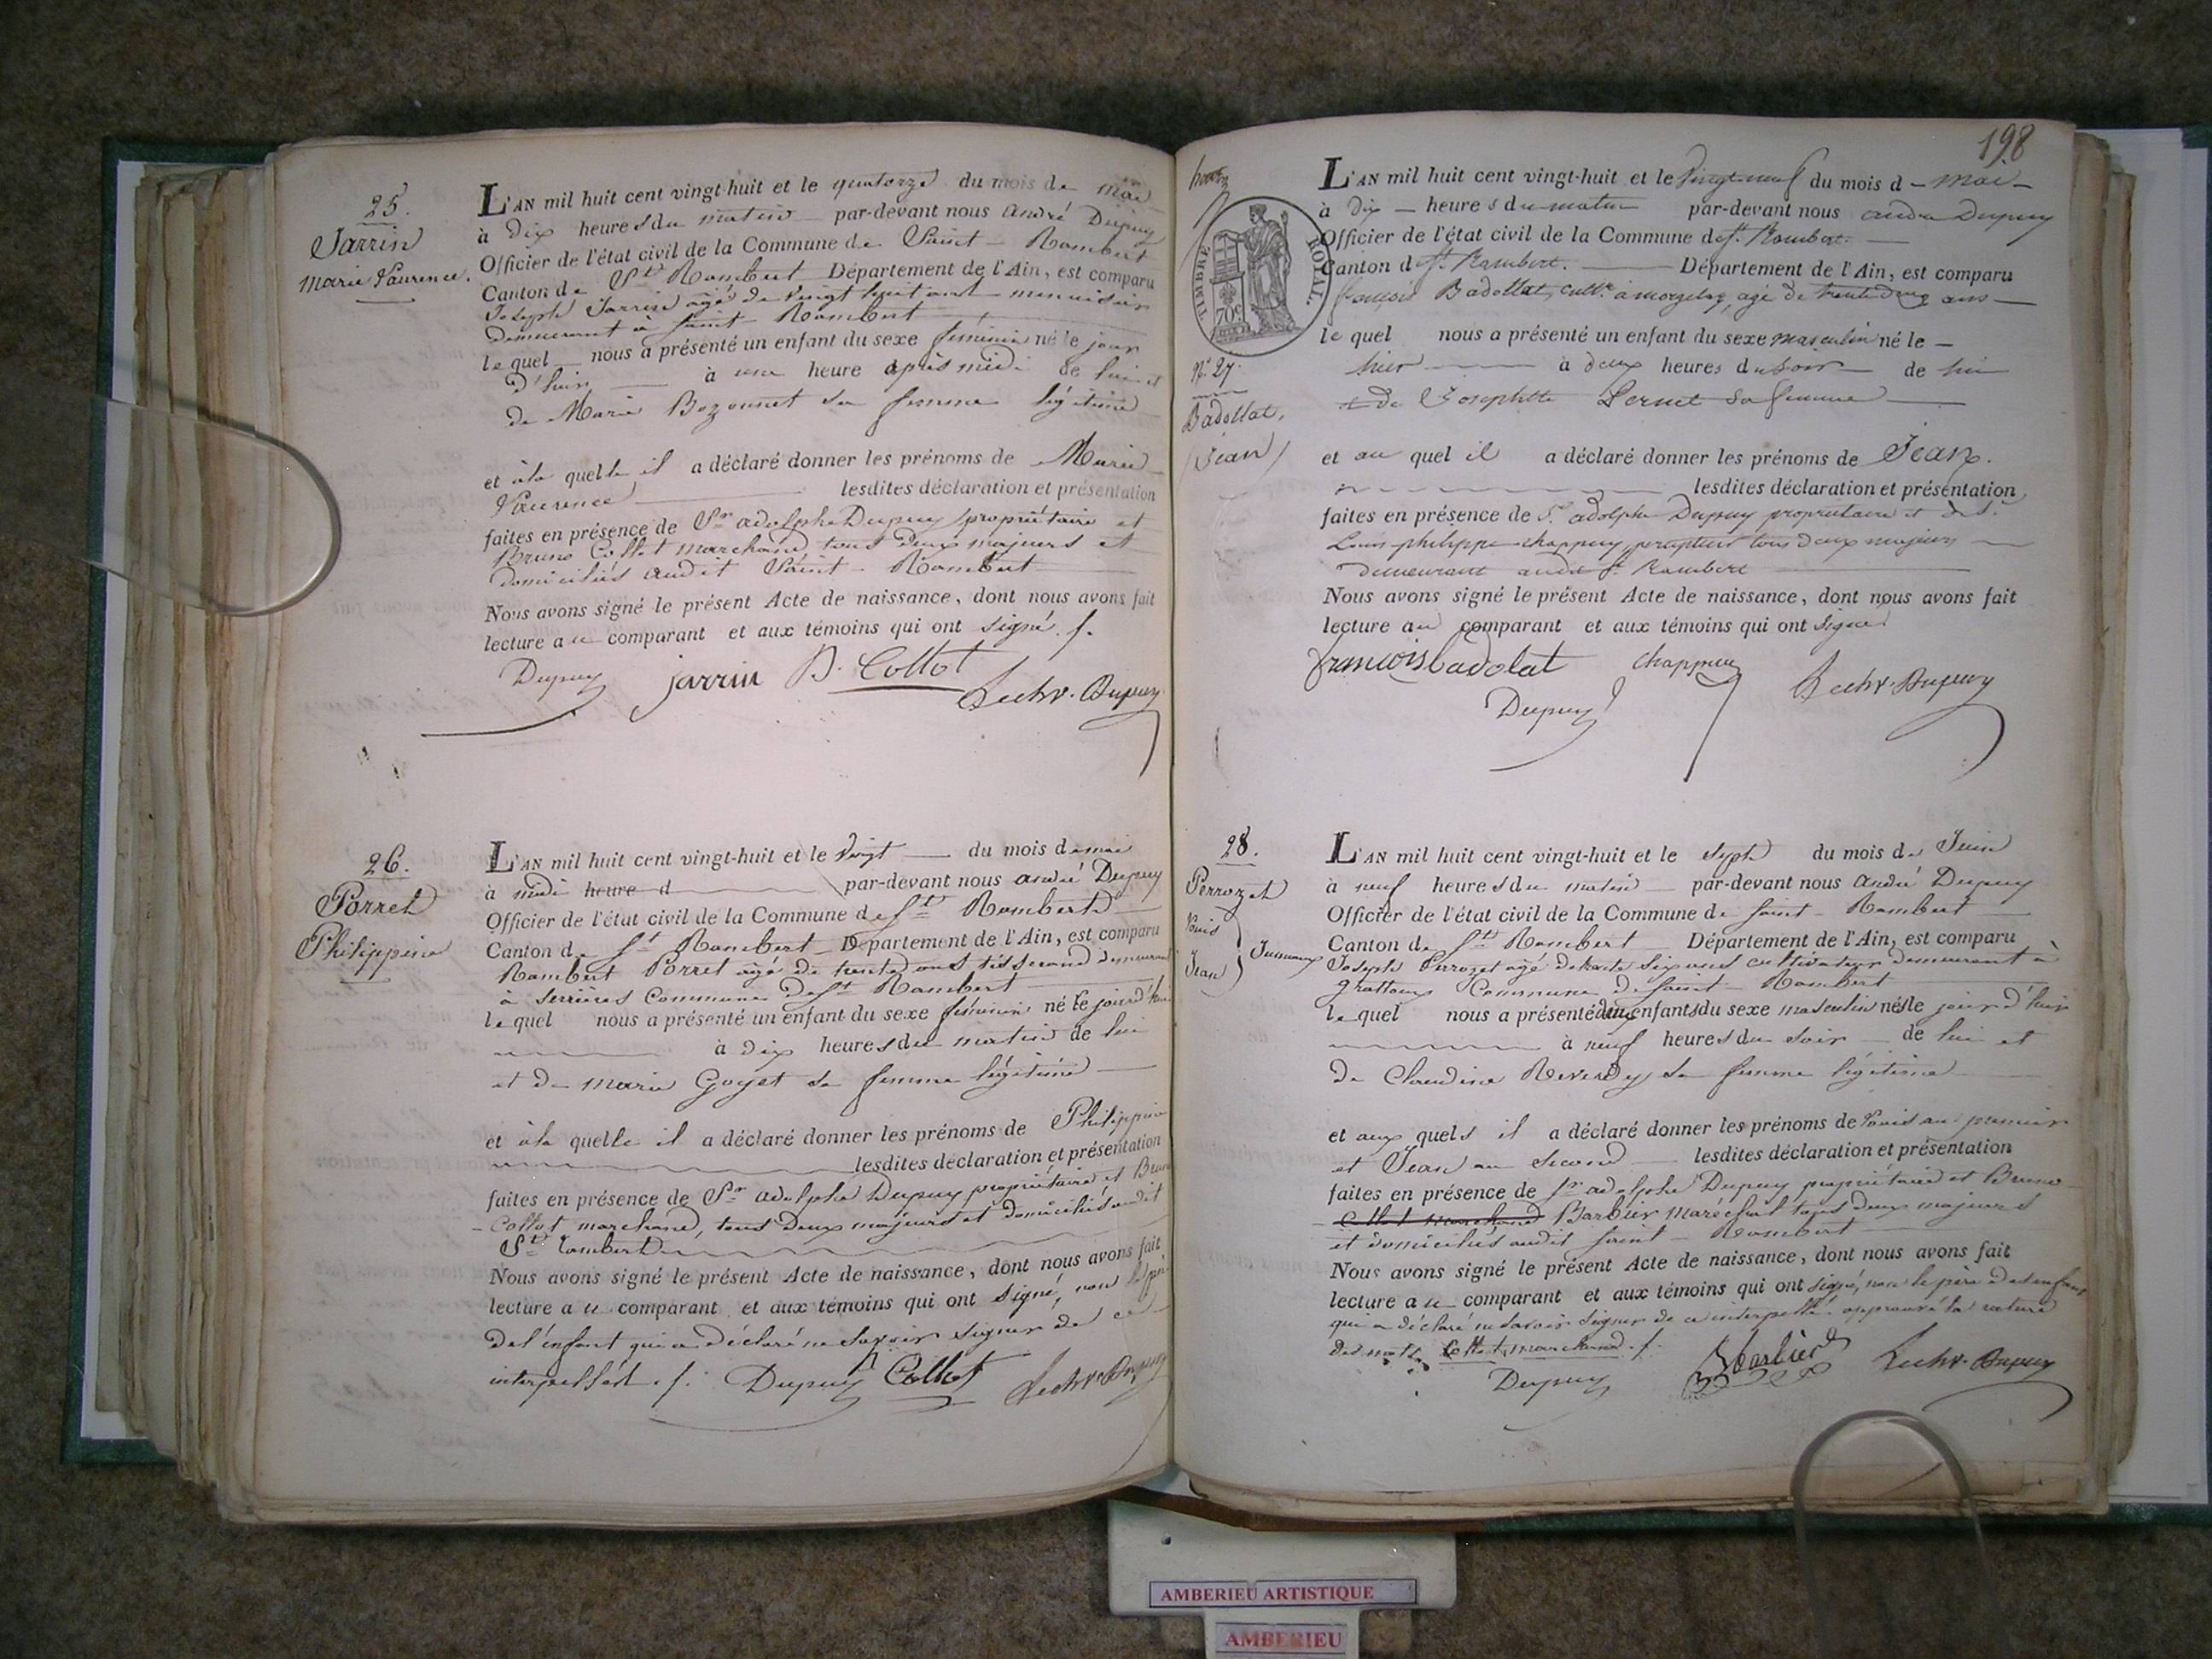 25.
Jarrin
Marie Laurence.
L'AN mil huit cent vingt-huit et le quatorze du mois de mai
à dix heures du matin par-devant nous andré Dupuy
Officier de l'état civil de la Commune de Saint-Rambert
Canton de St Rambert Département de l'Ain, est comparu
Joseph Jarrin agé de vingt huit ans menuisier
demeurant à saint Rambert
le quel nous a présenté un enfant du sexe féminin né le jour
d'huir à une heure après midi de lui et
de Marie Bozonnet sa femme légitime
et à la quelle il a déclaré donner les prénoms de Marie
Laurence lesdites déclaration et présentation
faites en présence de Sr adolphe Dupuy propriétaire et
Bruno Collot marchand, tous deux majeurs et
domiciliés audit Saint-Rambert
Nous avons signé le présent Acte de naissance, dont nous avons fait
lecture au comparant et aux témoins qui ont signé ./.
Dupuy jarrin B. Collot
Dupuy
26.
Porret
Philippine
L'AN mil huit cent vingt-huit et le vingt du mois de mai
à midi heure d par-devant nous andré Dupuy
Officier de l'état civil de la Commune de St Rambert
Canton de St Rambert Département de l'Ain, est comparu
Rambert Porret agé de trente ans tisserand demeurant
à serrières Commune de St Rambert
le quel nous a présenté un enfant du sexe féminin né le jour d'hui
à dix heures du matin de lui
et de marie Goyet sa femme légitime
et à la quelle il a déclaré donner les prénoms de Philippine
lesdites déclaration et présentation
faites en présence de Sr adolphe Dupuy propriétaire et Bruno
Collot marchand, tous deux majeurs et domiciliés audit
St Rambert
Nous avons signé le présent Acte de naissance, dont nous avons fait
lecture au comparant et aux témoins qui ont signé, non le père
de l'enfant qui a déclaré ne savoir signer de ce
interpellé ./. Dupuy Collot Dupuy
198
TIMBRE ROYAL.
70c
N° 27.
Badollat,
Jean
L'AN mil huit cent vingt-huit et le vingt neuf du mois d mai
à dix heures du matin par-devant nous andré Dupuy
Officier de l'état civil de la Commune de St. Rambert
Canton de St. Rambert. Département de l'Ain, est comparu
françois Badollat, cultr. à morgelaz, agé de trente deux ans
le quel nous a présenté un enfant du sexe masculin né le
hier à deux heures du soir de lui
et de Josephte Pernet sa femme
et au quel il a déclaré donner les prénoms de Jean.
lesdites déclaration et présentation
faites en présence de Sr. adolphe Dupuy propriétaire et de Sr.
Louis philippe chappuy, percepteur tous deux majeurs
demeurant audit St. Rambert
Nous avons signé le présent Acte de naissance, dont nous avons fait
lecture au comparant et aux témoins qui ont signé
francois badolat chappuy
Dupuy Dupuy
28.
Perrozet
Louis
Jean
Jumeaux
L'AN mil huit cent vingt-huit et le sept du mois de Juin
à neuf heures du matin par-devant nous André Dupuy
Officier de l'état civil de la Commune de saint-Rambert
Canton de St Rambert Département de l'Ain, est comparu
Joseph Perrozet agé de trente six ans cultivateur demeurant à
grattoux Commune de saint-Rambert
le quel nous a présenté deux enfants du sexe masculin nés le jour d'huir
à neuf heures du soir de lui et
de Claudine Reverdy sa femme légitime
et aux quels il a déclaré donner les prénoms de Louis au premier
et Jean au second lesdites déclaration et présentation
faites en présence de Sr adolphe Dupuy propriétaire et Bruno
Collot marchand Barbier maréchal tous deux majeurs
et domiciliés audit saint-Rambert
Nous avons signé le présent Acte de naissance, dont nous avons fait
lecture au comparant et aux témoins qui ont signé, non le père des enfants
qui a déclaré ne savoir signer de ce interpellé. approuvé la rature
des mots Collot, marchand ./.
Dupuy Barbier Dupuy
AMBERIEU ARTISTIQUE
AMBERIEU